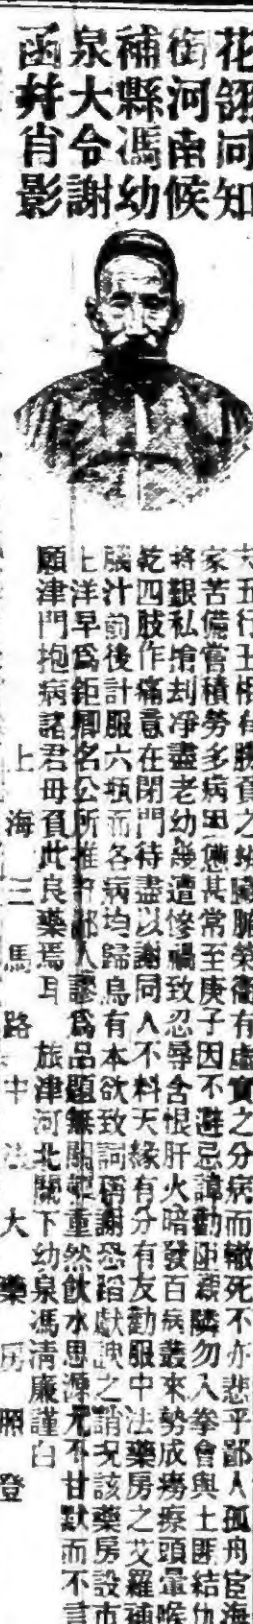 花翎同知
銜河南候
補縣馮幼
泉大令謝
函幷肖影
夫五行王相有勝負之殊臟腑榮衛有虛實之分病而轍死不亦悲乎鄙人孤舟宦海
家苦備嘗積勞多病困憊甚常至庚子因不避忌諱勸阻親隣勿入拳會與土匪結仇
將艱私搶刦净盡老幼幾遭慘禍致忍辱含恨肝火暗發百病叢來勢成癆瘵頭暈喉
乾四肢作痛意在閉門待盡以謝同人不料天緣有分有友勸服中法藥房之艾羅補
腦汁前後計服六瓶而各病均歸烏有本欲致詞稱謝恐蹈獻諛之誚况該藥房設市
上洋早爲鉅卿名公所推許鄙人謬爲品題無關輕重然飲水思源尤不甘默而不言
願津門抱病諸君毋負此良藥焉耳 旅津河北關下幼泉馮清廉謹白
上海三馬路中法大藥房照登